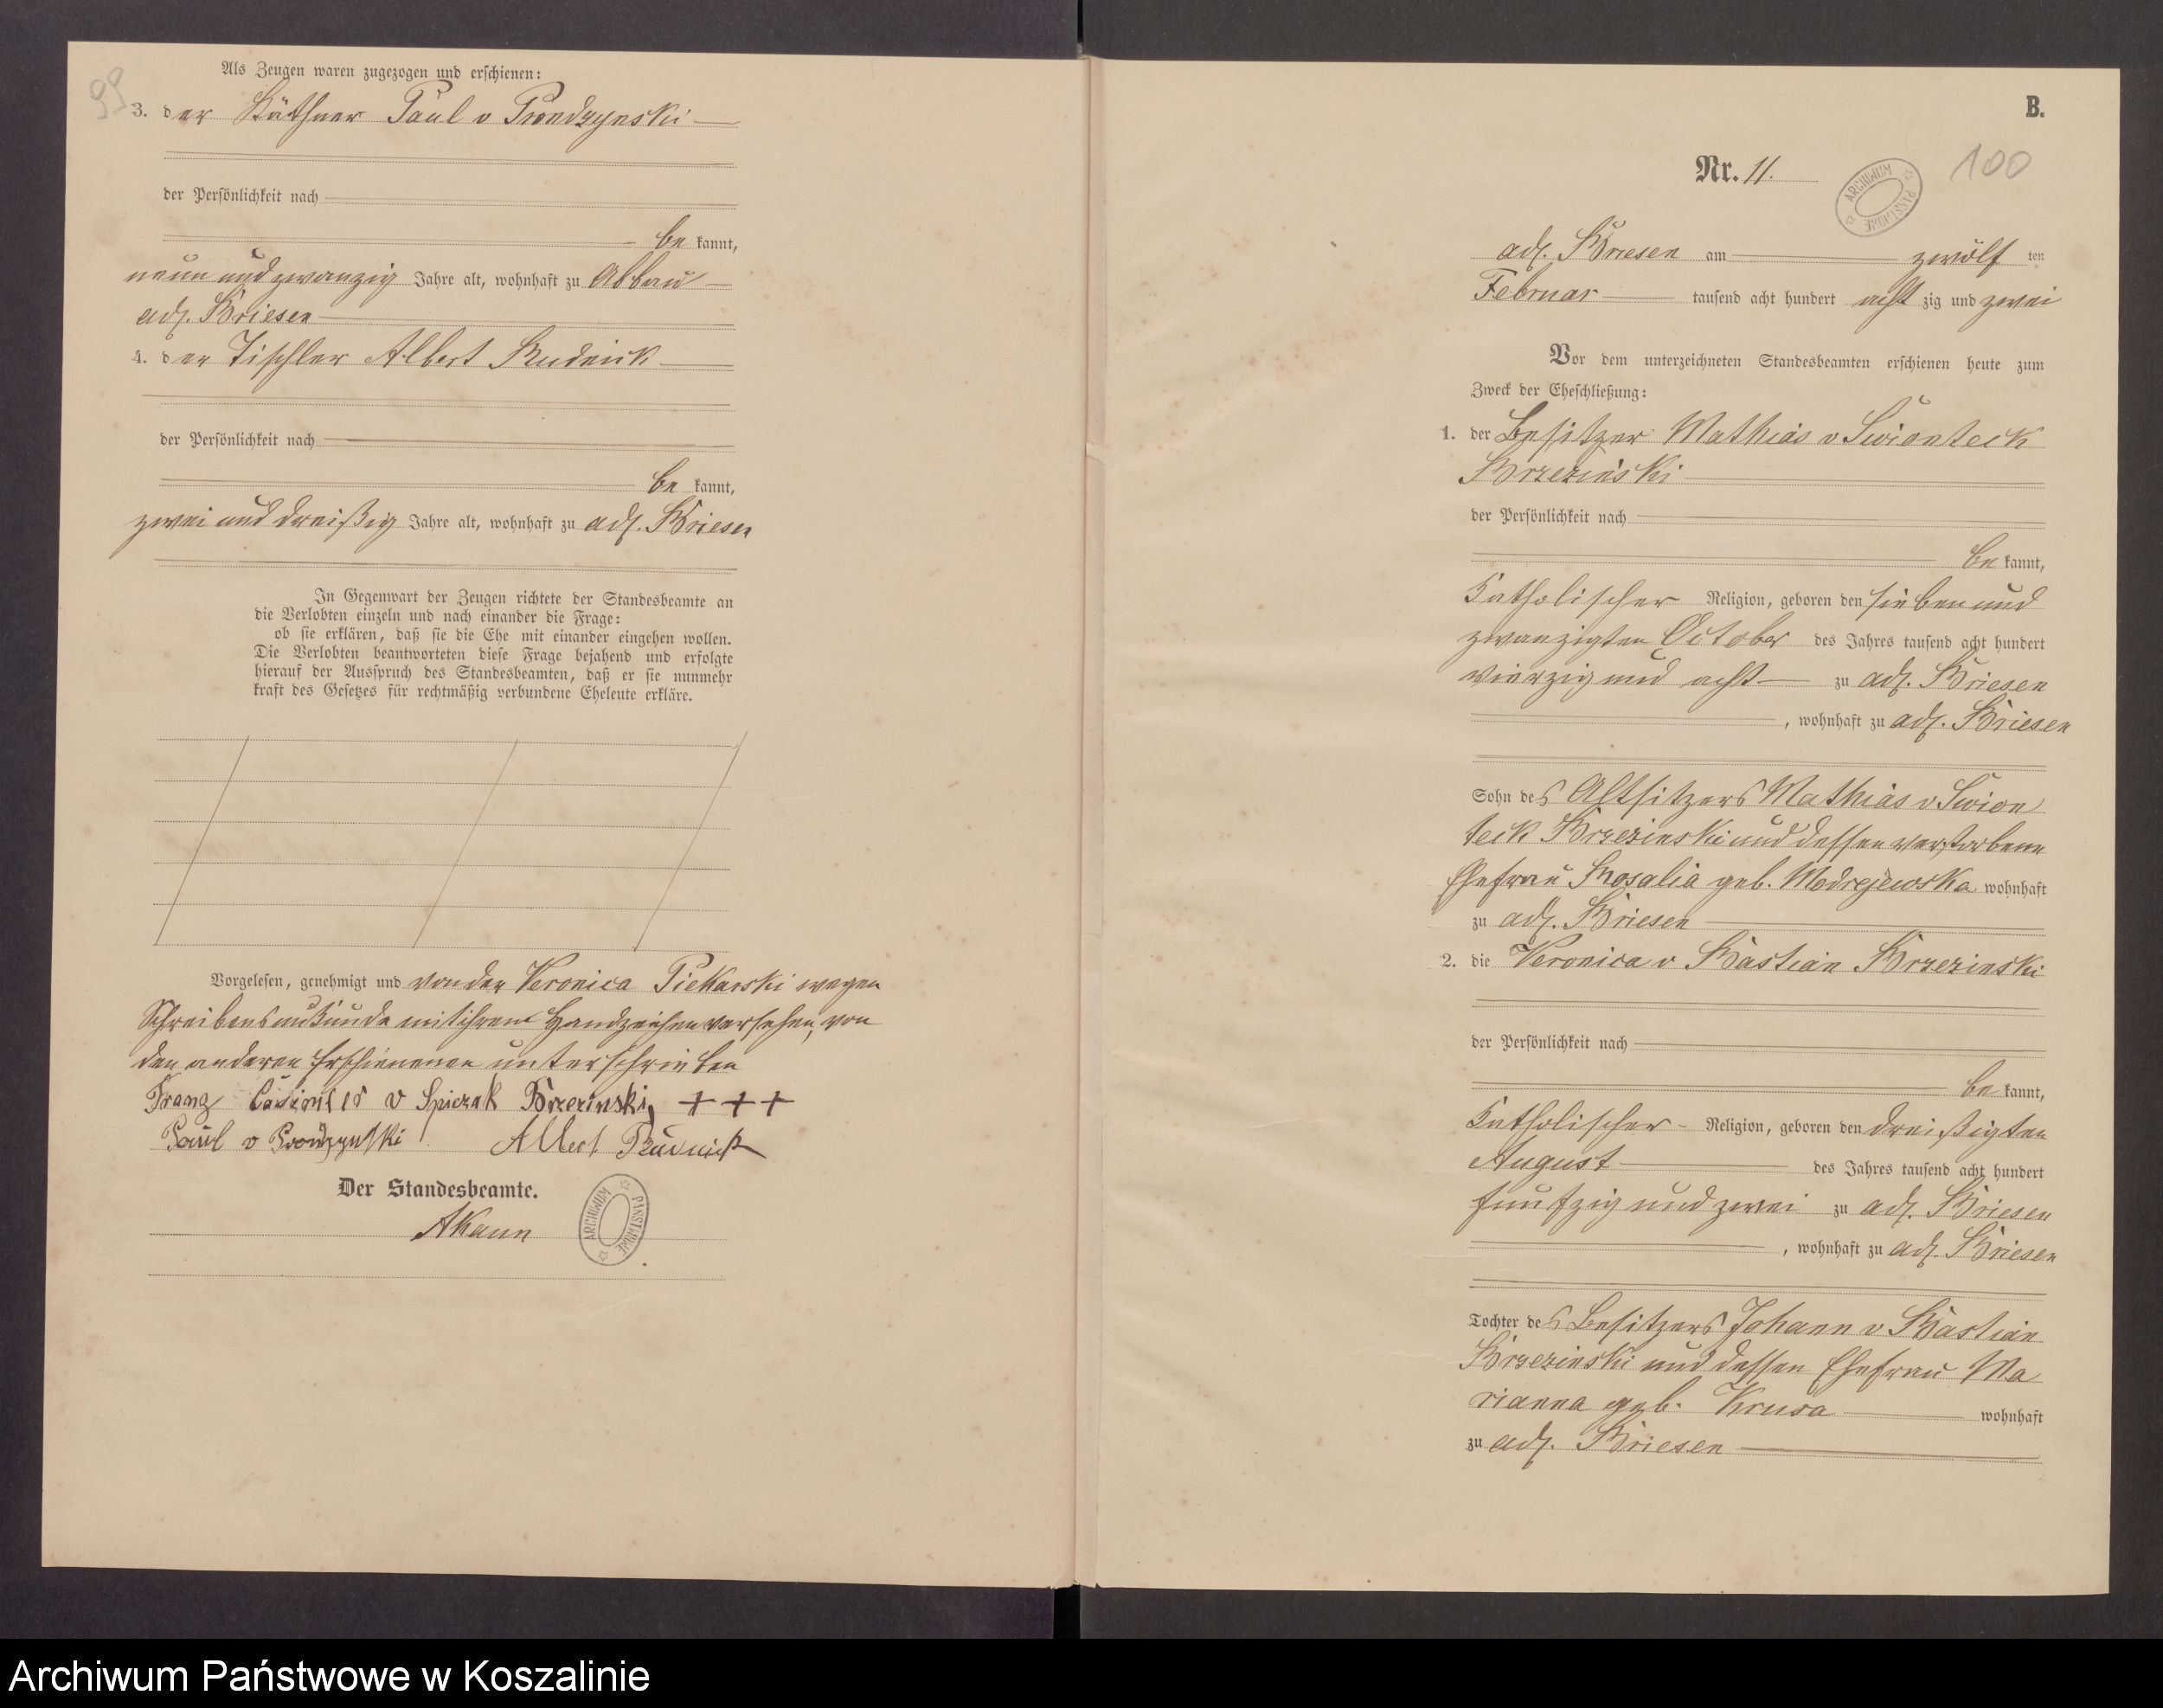 99
Als Zeugen waren zugezogen und erschienen:
3. der Käthner Paul v Prondzynski
der Persönlichkeit nach
be kannt,
neun und zwanzig Jahre alt, wohnhaft zu Abbau
adl. Briesen
4. der Tischler Albert Rudnick
der Persönlichkeit nach
be kannt,
zwei und dreißig Jahre alt, wohnhaft zu adl. Briesen
In Gegenwart der Zeugen richtete der Standesbeamte an
die Verlobten einzeln und nach einander die Frage:
ob sie erklären, daß sie die Ehe mit einander eingehen wollen.
Die Verlobten beantworteten diese Frage bejahend und erfolgte
hierauf der Ausspruch des Standesbeamten, daß er sie nunmehr
kraft des Gesetzes für rechtmäßig verbundene Eheleute erkläre.
Vorgelesen, genehmigt und von der Veronica Piekarski wegen
Schreibensunkunde mit ihrem Handzeichen versehen, von
den anderen Erschienenen unterschrieben
Franz Casimir v Spiczak Brzezinski, + + +
Paul v Prondzynski Albert Rudnick
Der Standesbeamte.
ARCHIWUM PAŃSTWOWE
B.
Nr. 11.
ARCHIWUM PAŃSTWOWE
100
adl. Briesen am zwölf ten
Februar tausend acht hundert acht zig und zwei
Vor dem unterzeichneten Standesbeamten erschienen heute zum
Zweck der Eheschließung:
1. der Besitzer Mathias v Swionteck
Brzezinski
der Persönlichkeit nach
be kannt,
katholischer Religion, geboren den sieben und
zwanzigten October des Jahres tausend acht hundert
vierzig und acht zu adl. Briesen
, wohnhaft zu adl. Briesen
Sohn des Altsitzers Mathias v Swion
teck Brzezinski und dessen verstorbene
Ehefrau Rosalia geb. Modrejewska wohnhaft
zu adl. Briesen
2. die Veronica v Bastian Brzezinski
der Persönlichkeit nach
be kannt,
katholischer Religion, geboren den dreißigten
August des Jahres tausend acht hundert
fünfzig und zwei zu adl. Briesen
, wohnhaft zu adl. Briesen
Tochter des Besitzers Johann v Bastian
Brzezinski und dessen Ehefrau Ma
rianna geb. wohnhaft
zu adl. Briesen
Archiwum Państwowe w Koszalinie